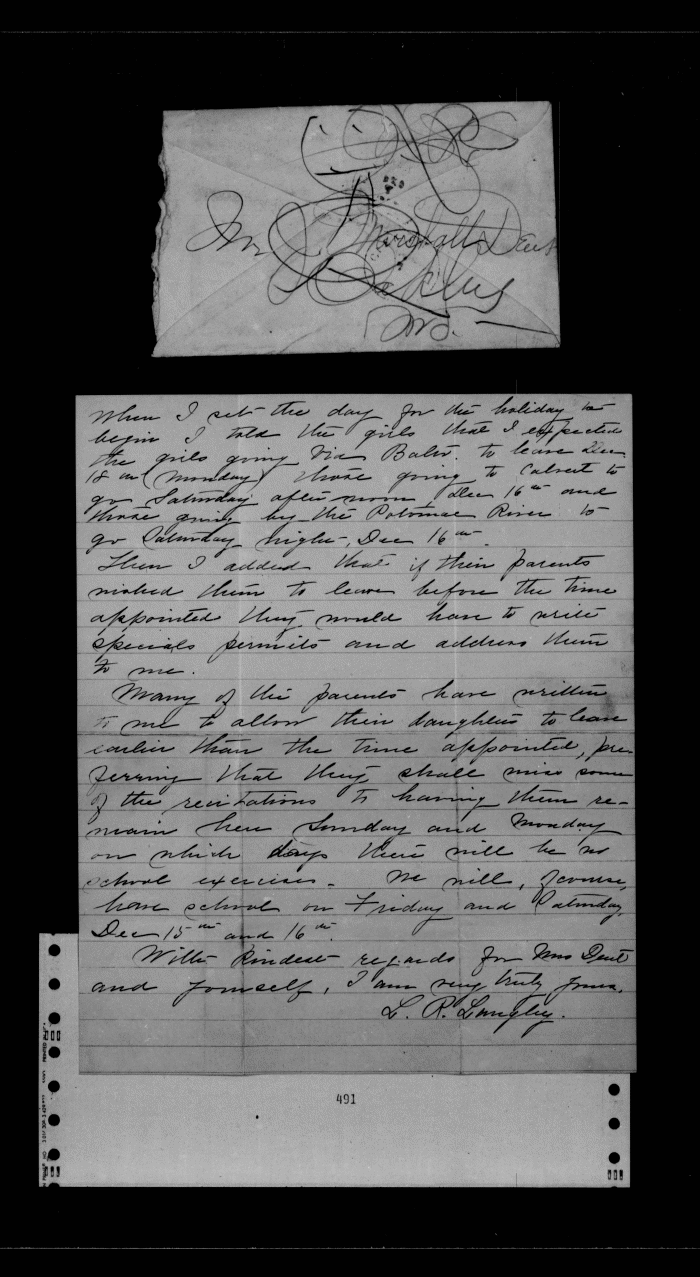 Mr J Marshall Dent
Oakley
Md.
When I set the day for the holiday to
begin I told the girls that I expected
the girls going via Balto. to leave Dec
18th (Monday) those going to Calvert to
go Saturday afternoon, Dec 16th and
those going by the Potomac River to
go Saturday night, Dec 16th.
Then I added that if their parents
wished them to leave before the time
appointed they would have to write
specials permits and address them
to me.
Many of the parents have written
to me to allow their daughters to leave
earlier than the time appointed, pre-
ferring that they shall miss some
of the recitations to having them re-
main here Sunday and Monday
on which days there will be no
school exercises. We will, of course,
have school on Friday and Saturday,
Dec 15th and 16th.
With kindest regards for Mrs Dent
and yourself, I am very truly yours,
L. R. Langley.
491